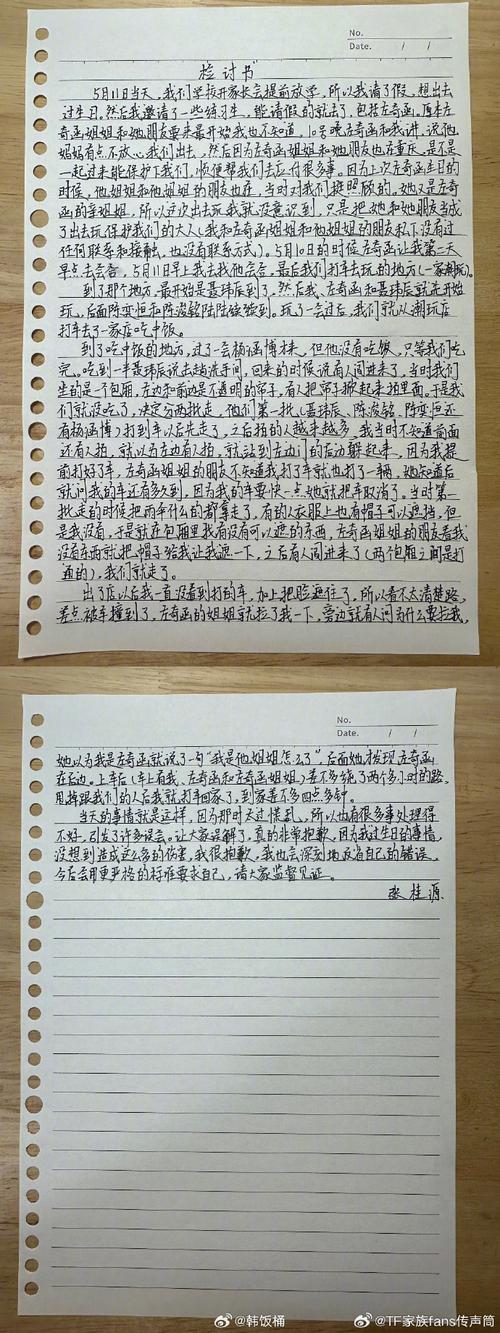 No.
Date. / /
检讨书
5月11日当天，我们学校开家长会提前放学，所以我请了假，想出去
过生日。然后我邀请了一些练习生，能请假的就去了，包括左奇函。原本左
奇函姐姐和她朋友要来最开始我也不知道，10号晚左奇函和我讲，说他
妈妈有点不放心我们出去，然后因为左奇函姐姐和她朋友也在重庆，是不是
一起过来能保护下我们，顺便帮我们去应付很多事，因为上次左奇函生日的
时候，他姐姐和他姐姐的朋友也在，当时对我们挺照顾的，她又是左奇
函的亲姐姐，所以这次出去玩我就没意识到，只是把她和她朋友当成
了出去玩保护我们的大人（我和左奇函姐姐和他姐姐的朋友私下没有过
任何联系和接触，也没有联系方式）。5月10日的时候左奇函让我第二天
早点去会合，5月11日早上我去找他会合，最后我们打车去玩的地方（一家潮玩店）。
到了那个地方，最开始是聂玮辰到了，然后我、左奇函和聂玮辰就先开始
玩，后面陈奕恒和陈浚铭陆陆续续到。玩了一会过后，我们就从潮玩店
打车去了一家店吃中饭。
到了吃中饭的地方，过了一会杨涵博才来，但他没有吃饭，只等我们吃
完。吃到一半聂玮辰说出去趟洗手间，回来的时候说有人闯进来了，当时我们
坐的是个包厢，左边和前边是不透明的帘子，有人把帘子掀起来拍里面。于是我
们就没吃了，决定分两批走，他们第一批（聂玮辰、陈浚铭、陈奕恒还
有杨涵博）打到车以后先走了，之后拍的人越来越多，我当时不知道前面
还有人拍，就以为左边有人拍，就站到左边门的后边躲起来，因为我提
前打好了车，左奇函姐姐的朋友不知道我打了车就也打了一辆，她知道后
就问我的车还有多久到，因为我的车要快一点她就把车取消了，当时第一
批走的时候把雨伞什么的都拿走了，有的人衣服上也有帽子可以遮挡，但
是我没有，于是就在包厢里找有没有可以遮的东西，左奇函姐姐的朋友看我
没有东西就把帽子给我让我遮一下，之后有人闯进来了（两个包厢之间是打
通的），我们就走了。
出了店以后我一直没看到打的车，加上把脸遮住了，所以看不太清楚路，
差点被车撞到了，左奇函的姐姐就拉了我一下，旁边就有人问为什么要拉我，
No.
Date. / /
她以为我是左奇函就说了一句“我是他姐姐怎么了”，后面她才发现左奇函
在后边。上车后（车上有我、左奇函和左奇函姐姐）差不多绕了两个多小时的路，
甩掉跟我们的人后我就打车回家了，到家差不多四点多钟。
当天的事情就是这样，因为那时太慌乱，所以也有很多事处理得
不好，引发了许多误会。让大家误解了，真的非常抱歉，因为我过生日的事情，
没想到造成这么多的伤害，我很抱歉，我也会深刻地反省自己的错误，
今后会用更严格的标准要求自己，请大家监督见证。
张桂源
@韩饭桶 @TF家族fans传声筒